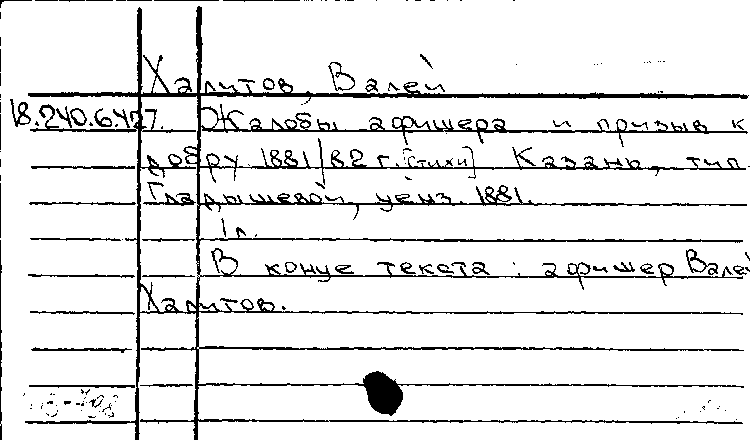 Халитов, Валей
18.240.6.427. Жалобы афишера и призыв к
добру 1881/82 г. [стихи] Казань, тип.
Гладышевой, ценз. 1881.
1 л.
В конце текста: афишер Валей
Халитов.